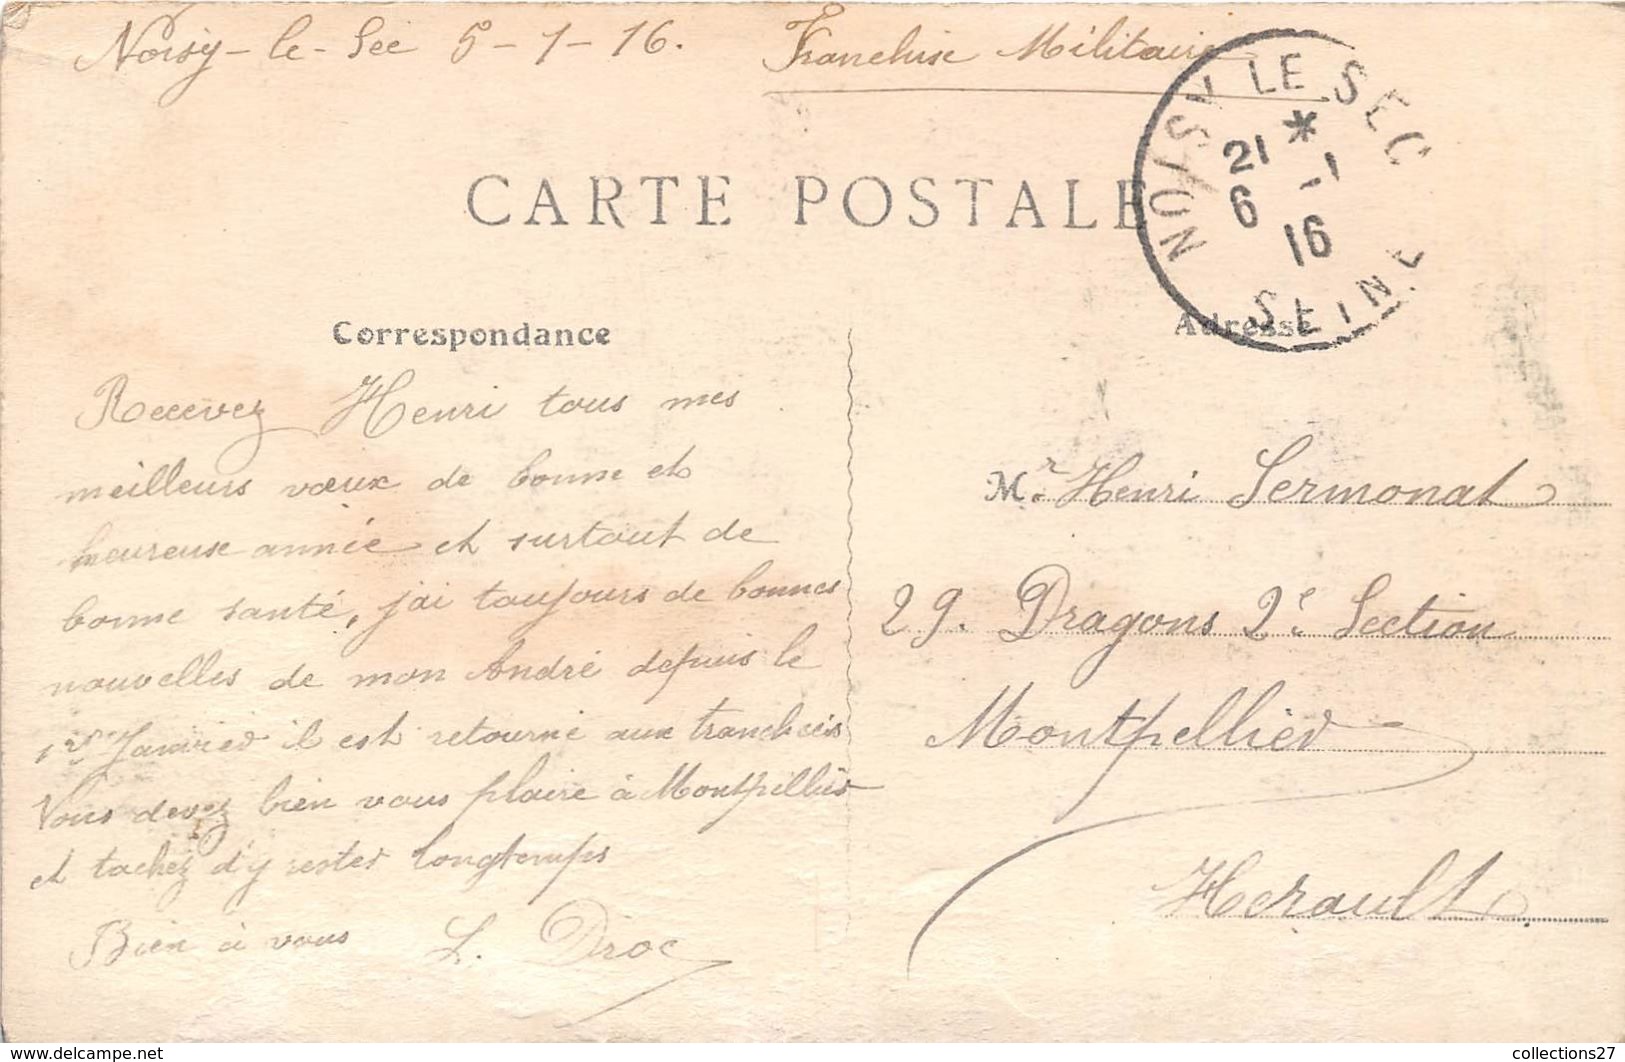 Noisy-le-Sec 5-1-16. Franchise Militaire
NOISY LE SEC
21 *
6 -1
16
SEINE
CARTE POSTALE
Correspondance
Recevez Henri tous mes
meilleurs vœux de bonne et
heureuse année et surtout de
bonne santé, j'ai toujours de bonnes
nouvelles de mon André depuis le
1er Janvier il est retourné aux tranchées
Vous devez bien vous plaire à Montpellier
et tachez d'y rester longtemps
Bien à vous L. Droc
Adresse
Mr. Henri Sermonat
29. Dragons 2e Section
Montpellier
Herault
www.delcampe.net
collections27